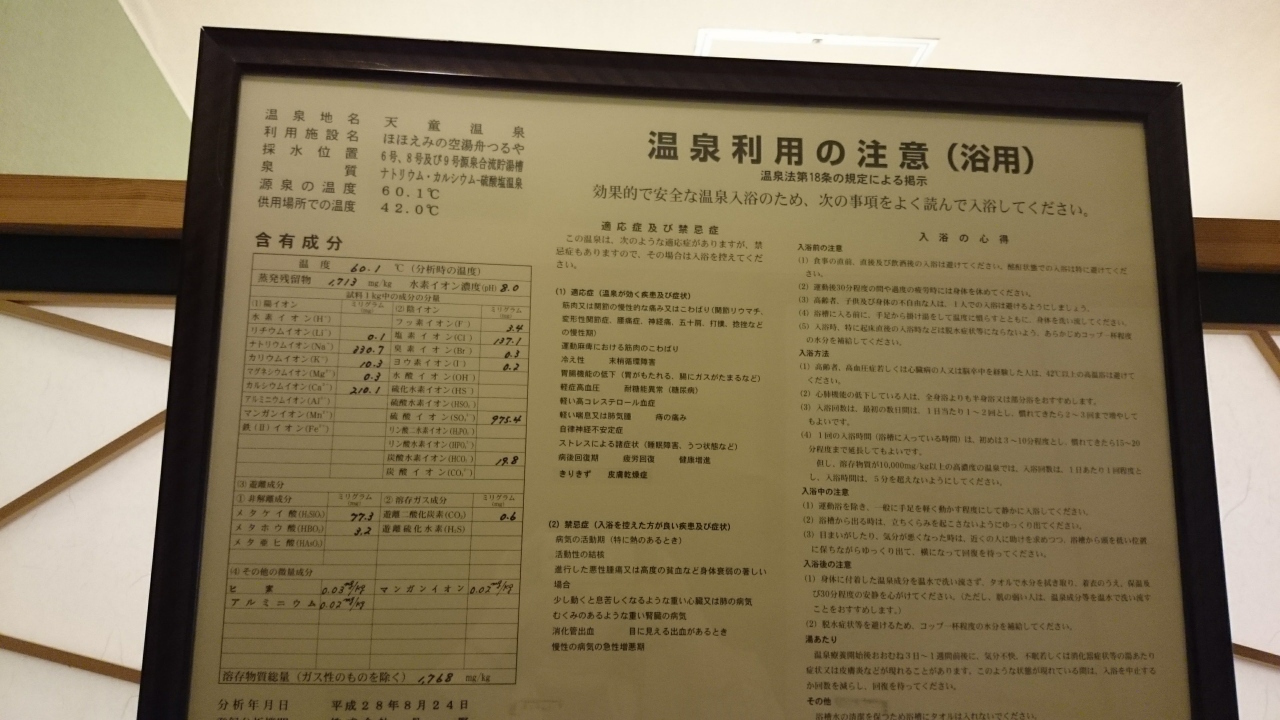 温泉地名 天童温泉
利用施設名 ほほえみの空湯舟つるや
採水位置 6号、8号及び9号源泉合流貯湯槽
泉質 ナトリウム・カルシウム-硫酸塩温泉
源泉の温度 60.1℃
供用場所での温度 42.0℃
含有成分
温度 60.1 ℃（分析時の温度）
蒸発残留物 1,713 mg/kg 水素イオン濃度(pH) 8.0
試料1kg中の成分の分量
(1)陽イオン ミリグラム(mg) (2)陰イオン ミリグラム(mg)
水素イオン(H⁺) フッ素イオン(F⁻) 3.4
リチウムイオン(Li⁺) 0.1 塩素イオン(Cl⁻) 137.1
ナトリウムイオン(Na⁺) 330.7 臭素イオン(Br⁻) 0.3
カリウムイオン(K⁺) 10.3 ヨウ素イオン(I⁻) 0.2
マグネシウムイオン(Mg²⁺) 0.3 水酸イオン(OH⁻)
カルシウムイオン(Ca²⁺) 210.1 硫化水素イオン(HS⁻)
アルミニウムイオン(Al³⁺) 硫酸水素イオン(HSO₄⁻)
マンガンイオン(Mn²⁺) 硫酸イオン(SO₄²⁻) 975.4
鉄(Ⅱ)イオン(Fe²⁺) リン酸二水素イオン(H₂PO₄⁻)
リン酸水素イオン(HPO₄²⁻)
炭酸水素イオン(HCO₃⁻) 19.8
炭酸イオン(CO₃²⁻)
(3)遊離成分
① 非解離成分 ミリグラム(mg) ② 溶存ガス成分 ミリグラム(mg)
メタケイ酸(H₂SiO₃) 77.3 遊離二酸化炭素(CO₂) 0.6
メタホウ酸(HBO₂) 3.2 遊離硫化水素(H₂S)
メタ亜ヒ酸(HAsO₂)
(4)その他の微量成分
ヒ素 0.03mg/kg マンガンイオン 0.02mg/kg
アルミニウム 0.02mg/kg
溶存物質総量（ガス性のものを除く） 1,768 mg/kg
分析年月日 平成28年8月24日
温泉利用の注意（浴用）
温泉法第18条の規定による掲示
効果的で安全な温泉入浴のため、次の事項をよく読んで入浴してください。
適応症及び禁忌症
この温泉は、次のような適応症がありますが、禁
忌症もありますので、その場合は入浴を控えてくだ
さい。
(1) 適応症（温泉が効く疾患及び症状）
筋肉又は関節の慢性的な痛み又はこわばり(関節リウマチ、
変形性関節症、腰痛症、神経痛、五十肩、打撲、捻挫など
の慢性期)
運動麻痺における筋肉のこわばり
冷え性 末梢循環障害
胃腸機能の低下（胃がもたれる、腸にガスがたまるなど）
軽症高血圧 耐糖能異常（糖尿病）
軽い高コレステロール血症
軽い喘息又は肺気腫 痔の痛み
自律神経不安定症
ストレスによる諸症状（睡眠障害、うつ状態など）
病後回復期 疲労回復 健康増進
きりきず 皮膚乾燥症
(2) 禁忌症（入浴を控えた方が良い疾患及び症状）
病気の活動期（特に熱のあるとき）
活動性の結核
進行した悪性腫瘍又は高度の貧血など身体衰弱の著しい
場合
少し動くと息苦しくなるような重い心臓又は肺の病気
むくみのあるような重い腎臓の病気
消化管出血 目に見える出血があるとき
慢性の病気の急性増悪期
入浴の心得
入浴前の注意
(1) 食事の直前、直後及び飲酒後の入浴は避けてください。酩酊状態での入浴は特に避けてくだ
さい。
(2) 運動後30分程度の間や過度の疲労時には身体を休めてください。
(3) 高齢者、子供及び身体の不自由な人は、1人での入浴は避けるようにしましょう。
(4) 浴槽に入る前に、手足から掛け湯をして温度に慣らすとともに、身体を洗い流してください。
(5) 入浴時、特に起床直後の入浴時などは脱水症状等にならないよう、あらかじめコップ一杯程度
の水分を補給してください。
入浴方法
(1) 高齢者、高血圧症若しくは心臓病の人又は脳卒中を経験した人は、42℃以上の高温浴は避けて
ください。
(2) 心肺機能の低下している人は、全身浴よりも半身浴又は部分浴をおすすめします。
(3) 入浴回数は、最初の数日間は、1日当たり1〜2回とし、慣れてきたら2〜3回まで増やして
もよいです。
(4) 1回の入浴時間（浴槽に入っている時間）は、初めは3〜10分程度とし、慣れてきたら15〜20
分程度まで延長してもよいです。
但し、溶存物質が10,000mg/kg以上の高濃度の温泉では、入浴回数は、1日あたり1回程度と
し、入浴時間は、5分を超えないようにしてください。
入浴中の注意
(1) 運動浴を除き、一般に手足を軽く動かす程度にして静かに入浴してください。
(2) 浴槽から出る時は、立ちくらみを起こさないようにゆっくり出てください。
(3) 目まいがしたり、気分が悪くなった時は、近くの人に助けを求めつつ、浴槽から頭を低い位置
に保ちながらゆっくり出て、横になって回復を待ってください。
入浴後の注意
(1) 身体に付着した温泉成分を温水で洗い流さず、タオルで水分を拭き取り、着衣のうえ、保温及
び30分程度の安静を心がけてください。（ただし、肌の弱い人は、温泉成分等を温水で洗い流す
ことをおすすめします。）
(2) 脱水症状等を避けるため、コップ一杯程度の水分を補給してください。
湯あたり
温泉療養開始後おおむね3日〜1週間前後に、気分不快、不眠若しくは消化器症状等の湯あたり
症状又は皮膚炎などが現れることがあります。このような状態が現れている間は、入浴を中止する
か回数を減らし、回復を待ってください。
その他
浴槽水の清潔を保つため浴槽にタオルは入れないでください。